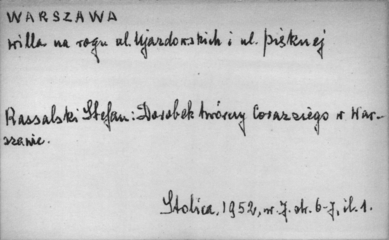 WARSZAWA
willa na rogu ul. Ujazdowskich i ul. pięknej
Rassalski Stefan: Dorobek twórczy Corazziego w War-
szawie.
Stolica, 1952, nr 7. str. 6-7, il. 1.